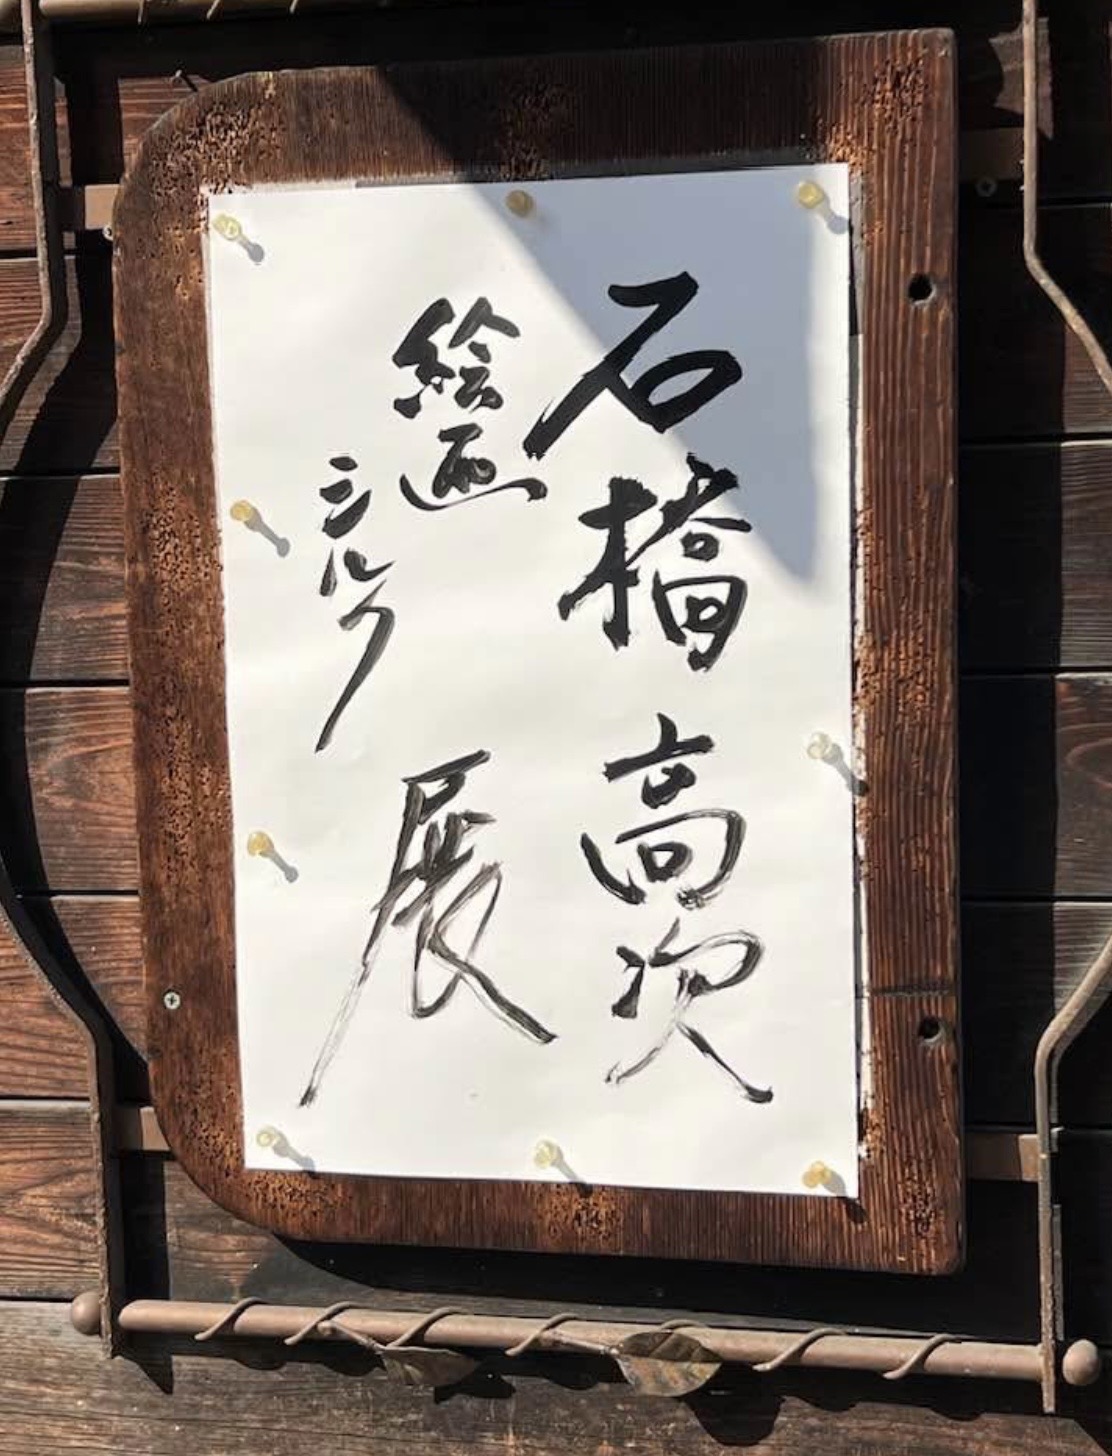 石橋高次
絵画
シルク
展